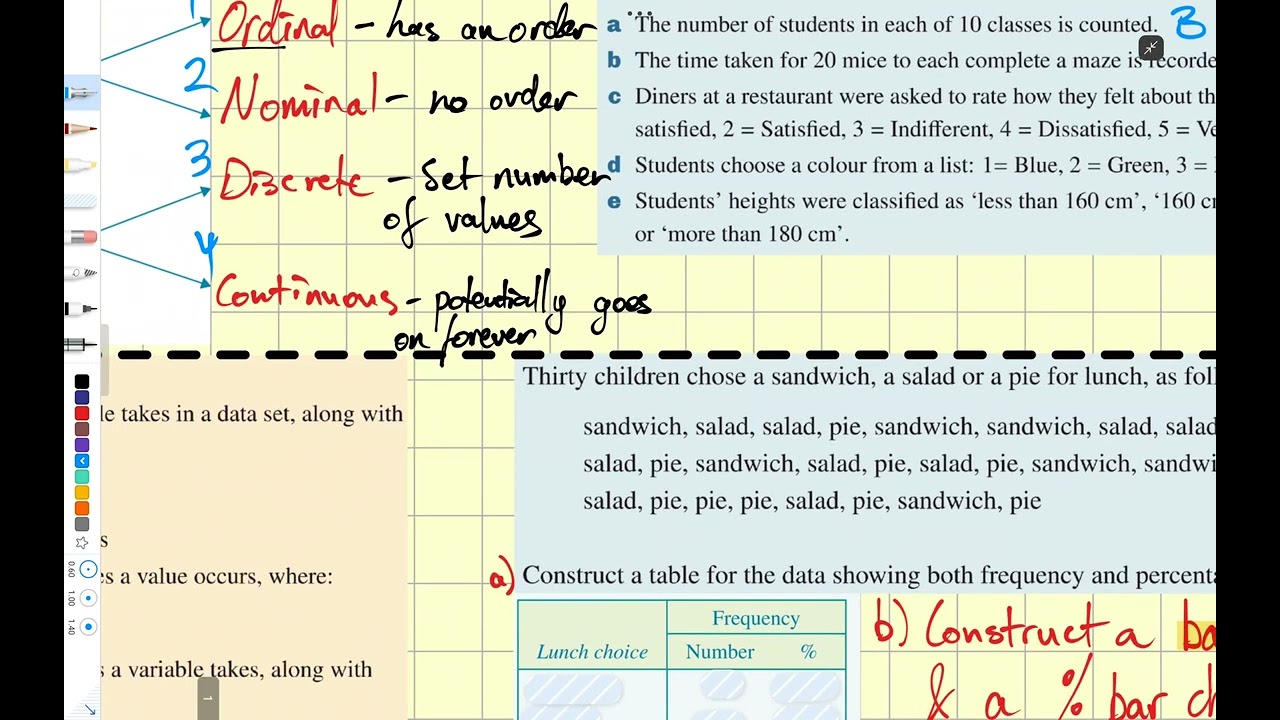 1
Ordinal - has an order
2
Nominal - no order
3
Discrete - Set number
of values
4
Continuous - potentially goes
on forever
a The number of students in each of 10 classes is counted. B
b The time taken for 20 mice to each complete a maze is recorde
c Diners at a restaurant were asked to rate how they felt about th
satisfied, 2 = Satisfied, 3 = Indifferent, 4 = Dissatisfied, 5 = Ve
d Students choose a colour from a list: 1= Blue, 2 = Green, 3 =
e Students’ heights were classified as ‘less than 160 cm’, ‘160 cm
or ‘more than 180 cm’.
le takes in a data set, along with
s
es a value occurs, where:
s a variable takes, along with
Thirty children chose a sandwich, a salad or a pie for lunch, as fol
sandwich, salad, salad, pie, sandwich, sandwich, salad, salad
salad, pie, sandwich, salad, pie, salad, pie, sandwich, sandwi
salad, pie, pie, pie, salad, pie, sandwich, pie
a) Construct a table for the data showing both frequency and percenta
Frequency
Lunch choice Number %
b) Construct a ba
& a % bar ch
0.60
1.00
1.40
1